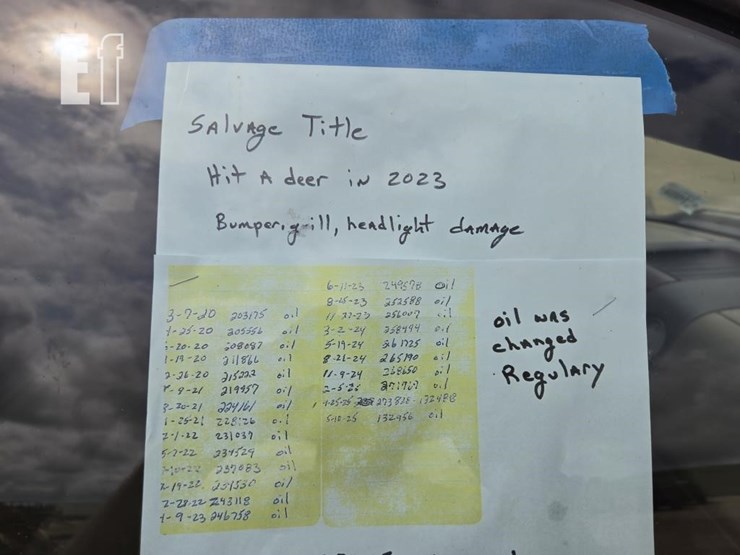 Ef
Salvage Title
Hit A deer in 2023
Bumper, grill, headlight damage
3-7-20 203175 oil
-25-20 205556 oil
-20-20 208087 oil
-19-20 211866 oil
2-26-20 215222 oil
-9-21 219957 oil
-20-21 224161 oil
-25-21 228126 oil
-1-22 231037 oil
5-7-22 234529 oil
237083 oil
2-19-22 oil
2-28-22 243118 oil
-9-23 246758 oil
6-11-23 249578 oil
8-15-23 252588 oil
11 256007 oil
3-2-24 258494 oil
5-19-24 261725 oil
8-21-24 265190 oil
11-9-24 268650 oil
2-5-25 oil
132488
5-12-25 132456 oil
oil was
changed
Regulary